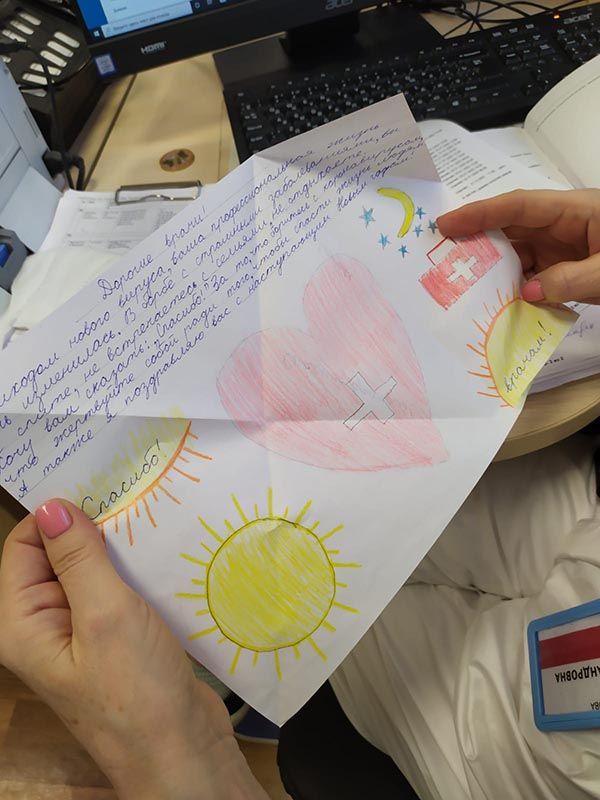 Дорогие врачи!
риходом нового вируса, ваша профессиональная жизнь
ь изменилась. В борьбе с страшными заболеваниями, вы
спите, не встречаетесь с семьями, не отдыхаете.
хочу вам сказать: "Спасибо!" За то, что боритесь с коронавирусом,
что жертвуйте собой ради того, чтобы спасти жизнь людям.
А также я поздравляю вас с наступающим Новым годом!
Спасибо!
врачам!
HDMI
acer
acer
АНДРОВНА